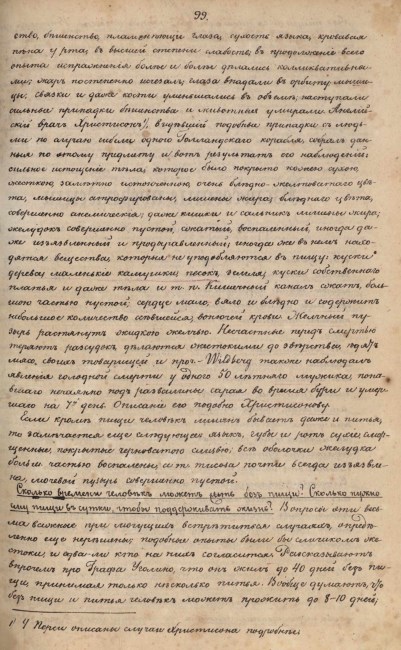 99.
ство, бѣшенство, пламенѣющіе глаза, сухость языка, кровавая
пѣна у рта; въ высшей степени слабость; въ продолженіе всего
опыта испражненія болѣе и болѣе дѣлались колликвативны-
ми; жаръ постепенно исчезалъ, глаза впадали въ орбиту мыш-
цы, связки и даже кости уменьшались въ объемѣ, наступали
сильные припадки бѣшенства и животныя умирали. Англій-
скій врачъ Христисонъ¹⁾, видѣвшій подобные припадки съ людь-
ми по случаю гибели одного Голландскаго корабля, собралъ дан-
ныя по этому предмету и вотъ результатъ его наблюденій:
сильное истощеніе тѣла, которое было покрыто кожею сухою
жесткою, замѣтно истонченною, очень блѣдно-желтоватаго цвѣ-
та, мышцы атрофированы, лишены жира, блѣднаго цвѣта,
совершенно анемическія; даже кишки и сальникъ лишены жира;
желудокъ совершенно пустой, сжатый, воспаленный, иногда да-
же изъязвленный и продыравленный; иногда же въ немъ нахо-
дятся вещества, которыя не употребляются въ пищу: куски
дерева, маленькіе камушки, песокъ, земля, куски собственнаго
платья и даже тѣла и т. п. Кишечный каналъ сжатъ, боль-
шою частью пустой, сердце мало, вяло и блѣдно и содержитъ
небольшое количество сопѣвшейся, вонючей крови. Желчный пу-
зырь растянутъ жидкою желчью. Несчастные передъ смертью
теряютъ разсудокъ, дѣлаются жестокими до звѣрства, ѣдятъ
мясо своихъ товарищей и проч.– Wildberg также наблюдалъ
явленія голодной смерти у одного 50 лѣтняго мужика, попав-
шаго нечаянно подъ развалины сарая во время бури и умер-
шаго на 7й день. Описаніе его подобно Христисонову.
Если кромѣ пищи человѣкъ лишенъ бываетъ даже и питья,
то замѣчается еще слѣдующее: языкъ, губы и ротъ сухіе, смор-
щенные, покрытые черноватою слизью; всѣ оболочки желудка
большею частью воспалены, и почти всегда изъязвле-
ны, мочевой пузырь совершенно пустой.
Сколько времени человѣкъ можетъ жить безъ пищи? Сколько нужно
ему пищи въ сутки, чтобы поддерживать жизнь? Вопросы эти весь-
ма важные при могущихъ встрѣтиться случаяхъ, опредѣ-
ленно еще нерѣшены; подобные опыты были бы слишкомъ же-
стоки, и едва-ли кто на нихъ согласится. Разсказываютъ
впрочемъ про Графа Уголино, что онъ жилъ до 40 дней безъ пи-
щи принимая только нѣсколько питья. Вообще думаютъ, что
безъ пищи и питья человѣкъ можетъ прожить до 8-10 дней;
¹⁾ У описаны случаи Христисона подробнѣе.